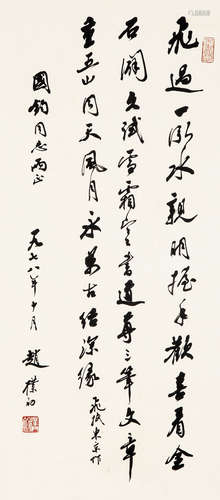 飛過一泓水親朋握手歡喜看金
石久試雪霜寒書道尊三筆文章
重五山同天風月永萬古結深緣 飛抵東京作
國鈞同志兩正
一九七八年十月 趙樸初